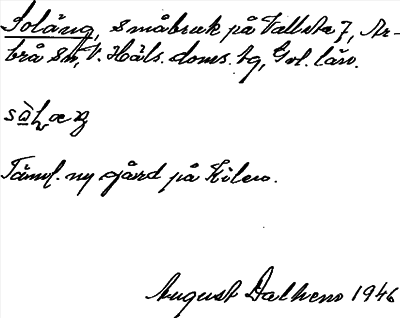 Soläng, småbruk på Vallsta 7, Ar-
brå sn, V. Häls. doms. tg, Gvl. län.
Täml. ny gård på Kilen.
August Dalhem 1946